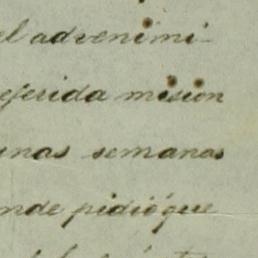 el advenimi-
eferida mision
unas semanas
nde pidió que